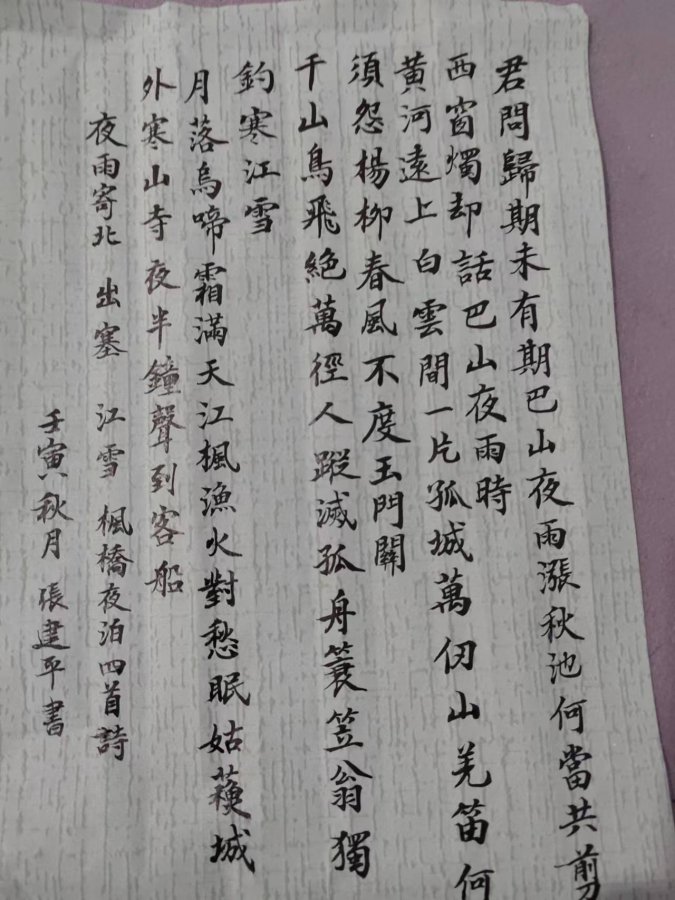 君問歸期未有期巴山夜雨漲秋池何當共剪
西窗燭却話巴山夜雨時
黄河遠上白雲間一片孤城萬仞山羌笛何
須怨楊柳春風不度玉門關
千山鳥飛絶萬徑人蹤滅孤舟簑笠翁獨
釣寒江雪
月落烏啼霜滿天江楓漁火對愁眠姑蘓城
外寒山寺夜半鐘聲到客船
夜雨寄北 出塞 江雪 楓橋夜泊四首詩
壬寅秋月 張建平書